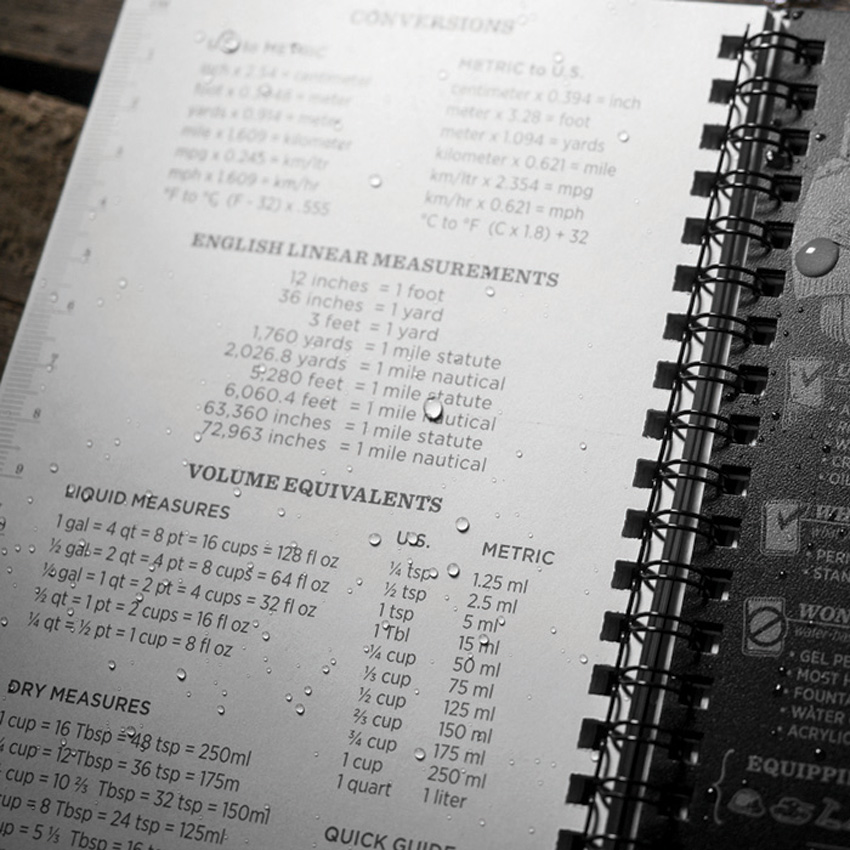 CONVERSIONS
U.S. to METRIC
inch x 2.54 = centimeter
foot x 0.3048 = meter
yards x 0.914 = meter
mile x 1.609 = kilometer
mpg x 0.245 = km/ltr
mph x 1.609 = km/hr
°F to °C (F - 32) x .555
METRIC to U.S.
centimeter x 0.394 = inch
meter x 3.28 = foot
meter x 1.094 = yards
kilometer x 0.621 = mile
km/ltr x 2.354 = mpg
km/hr x 0.621 = mph
°C to °F (C x 1.8) + 32
ENGLISH LINEAR MEASUREMENTS
12 inches = 1 foot
36 inches = 1 yard
3 feet = 1 yard
1,760 yards = 1 mile statute
2,026.8 yards = 1 mile nautical
5,280 feet = 1 mile statute
6,060.4 feet = 1 mile nautical
63,360 inches = 1 mile statute
72,963 inches = 1 mile nautical
VOLUME EQUIVALENTS
LIQUID MEASURES
1 gal = 4 qt = 8 pt = 16 cups = 128 fl oz
½ gal = 2 qt = 4 pt = 8 cups = 64 fl oz
¼ gal = 1 qt = 2 pt = 4 cups = 32 fl oz
½ qt = 1 pt = 2 cups = 16 fl oz
¼ qt = ½ pt = 1 cup = 8 fl oz
U.S. METRIC
¼ tsp 1.25 ml
½ tsp 2.5 ml
1 tsp 5 ml
1 Tbl 15 ml
¼ cup 50 ml
⅓ cup 75 ml
½ cup 125 ml
⅔ cup 150 ml
¾ cup 175 ml
1 cup 250 ml
1 quart 1 liter
DRY MEASURES
1 cup = 16 Tbsp = 48 tsp = 250ml
cup = 12 Tbsp = 36 tsp = 175m
cup = 10 ⅔ Tbsp = 32 tsp = 150ml
cup = 8 Tbsp = 24 tsp = 125ml
= 5 ⅓ Tbsp = 16
QUICK GUIDE
1
2
3
4
5
6
7
8
9
• GEL
• MOST
•
• WATER
•